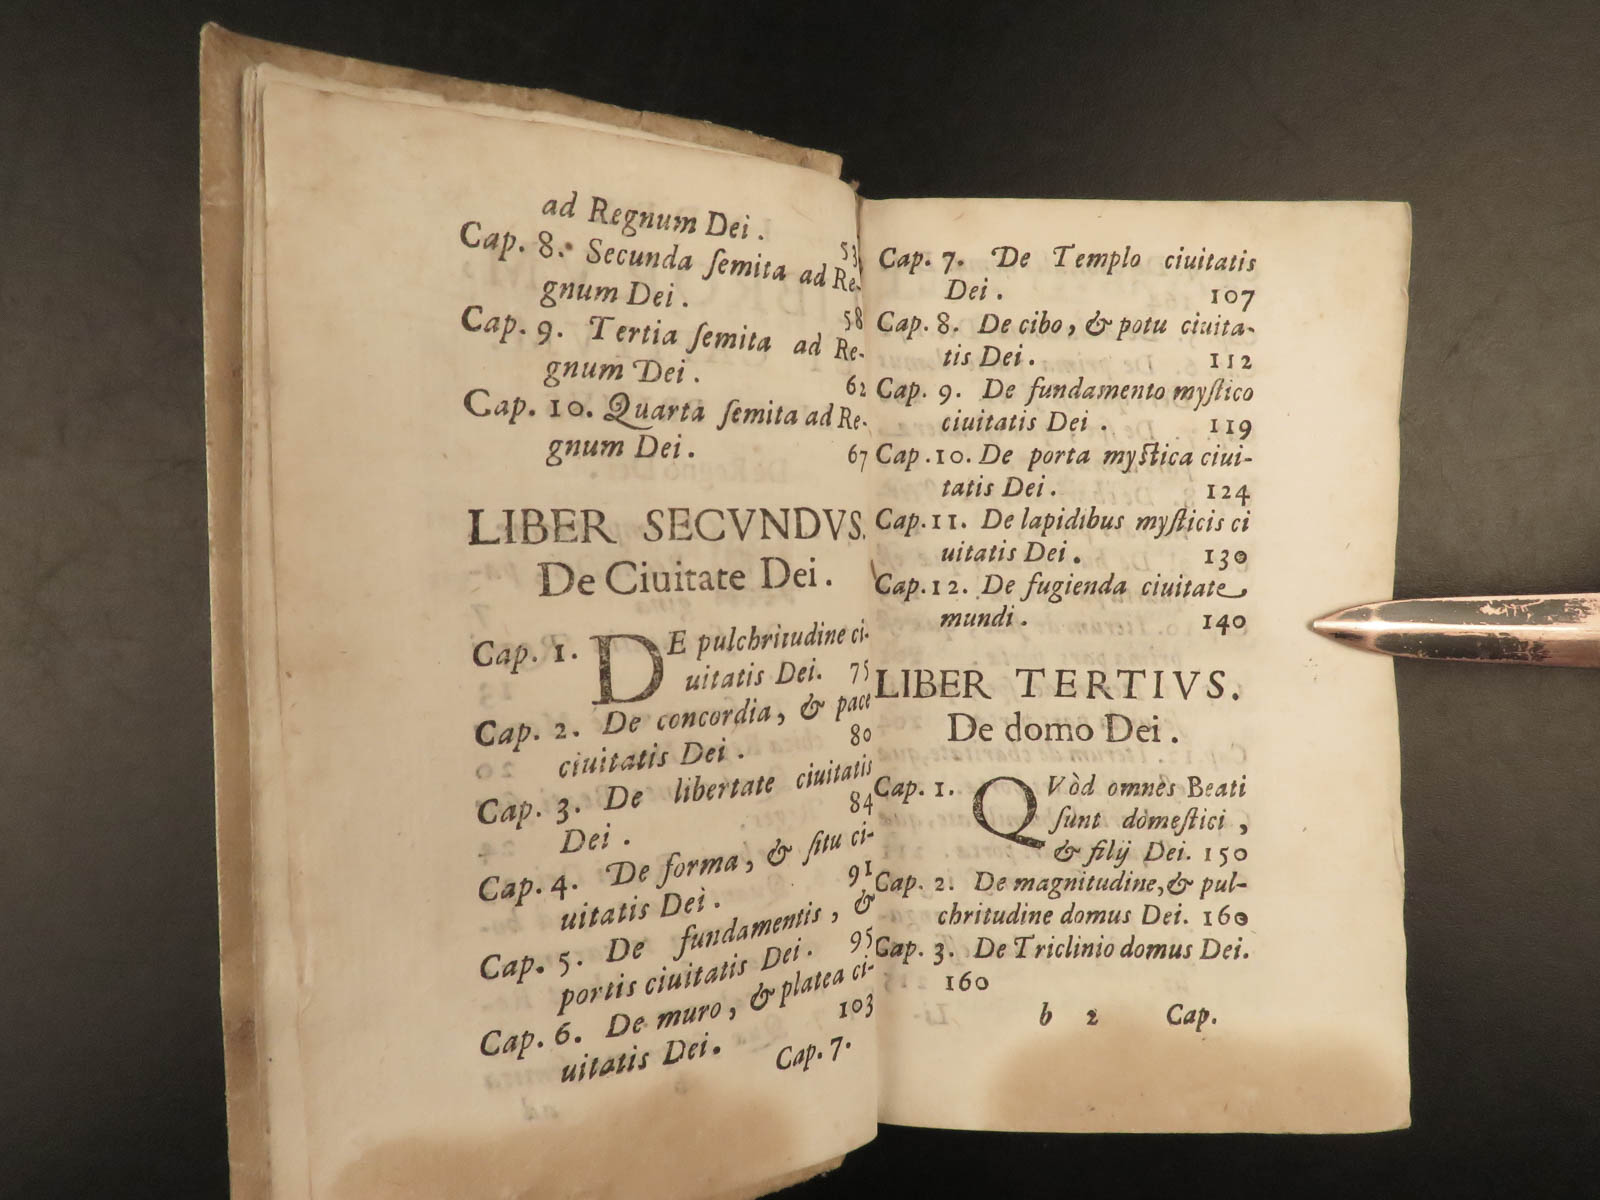 ad Regnum Dei. 53
Cap. 8. Secunda ſemita ad Re-
gnum Dei. 58
Cap. 9. Tertia ſemita ad Re-
gnum Dei. 62
Cap. 10. Quarta ſemita ad Re-
gnum Dei. 67
LIBER SECVNDVS.
De Ciuitate Dei.
Cap. 1. DE pulchritudine ci-
uitatis Dei. 75
Cap. 2. De concordia, & pace
ciuitatis Dei. 80
Cap. 3. De libertate ciuitatis
Dei. 84
Cap. 4. De forma, & ſitu ci-
uitatis Dei. 91
Cap. 5. De fundamentis, &
portis ciuitatis Dei. 95
Cap. 6. De muro, & platea ci-
uitatis Dei. 103
Cap. 7.
Cap. 7. De Templo ciuitatis
Dei. 107
Cap. 8. De cibo, & potu ciuita-
tis Dei. 112
Cap. 9. De fundamento myſtico
ciuitatis Dei. 119
Cap. 10. De porta myſtica ciui-
tatis Dei. 124
Cap. 11. De lapidibus myſticis ci
uitatis Dei. 130
Cap. 12. De fugienda ciuitate
mundi. 140
LIBER TERTIVS.
De domo Dei.
Cap. 1. QVòd omnes Beati
ſunt domeſtici,
& filij Dei. 150
Cap. 2. De magnitudine, & pul-
chritudine domus Dei. 160
Cap. 3. De Triclinio domus Dei.
160
b 2 Cap.